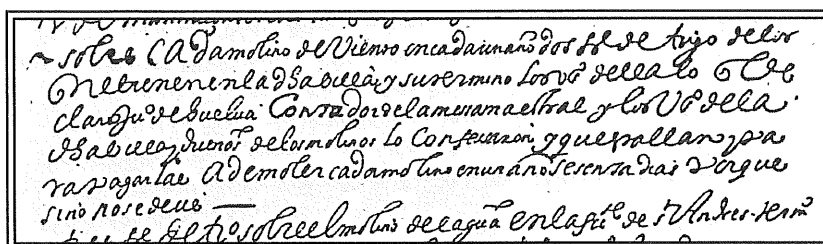 sobre Cada molino de Viento en cada un año dos fs de trigo de los
que tienen en la dha billa y su termino los vos della lo qe de
claro Juo de huelua Contador de la mesa maestral y los Vos de la
dha billa y dueños de los molinos lo Confesaron y que vallan pa
ra pagarlas A de moler cada molino en un año sesenta dias porque
sino no se deue
sobre el molino del agua en la de st Andres